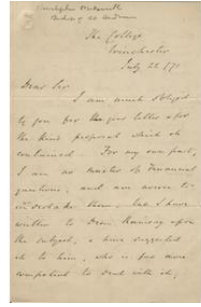 Bishop of St Andrews
The College
Winchester
July 22
Dear Sir
I am much obliged
to you for the your letter after
the kind proposal which it
contained. For my own part,
I am no master of Financial
questions, and am averse to
undertake them. But I have
written to Dean upon
the subject, & have suggested
it to him, who is far more
competent to deal with it;